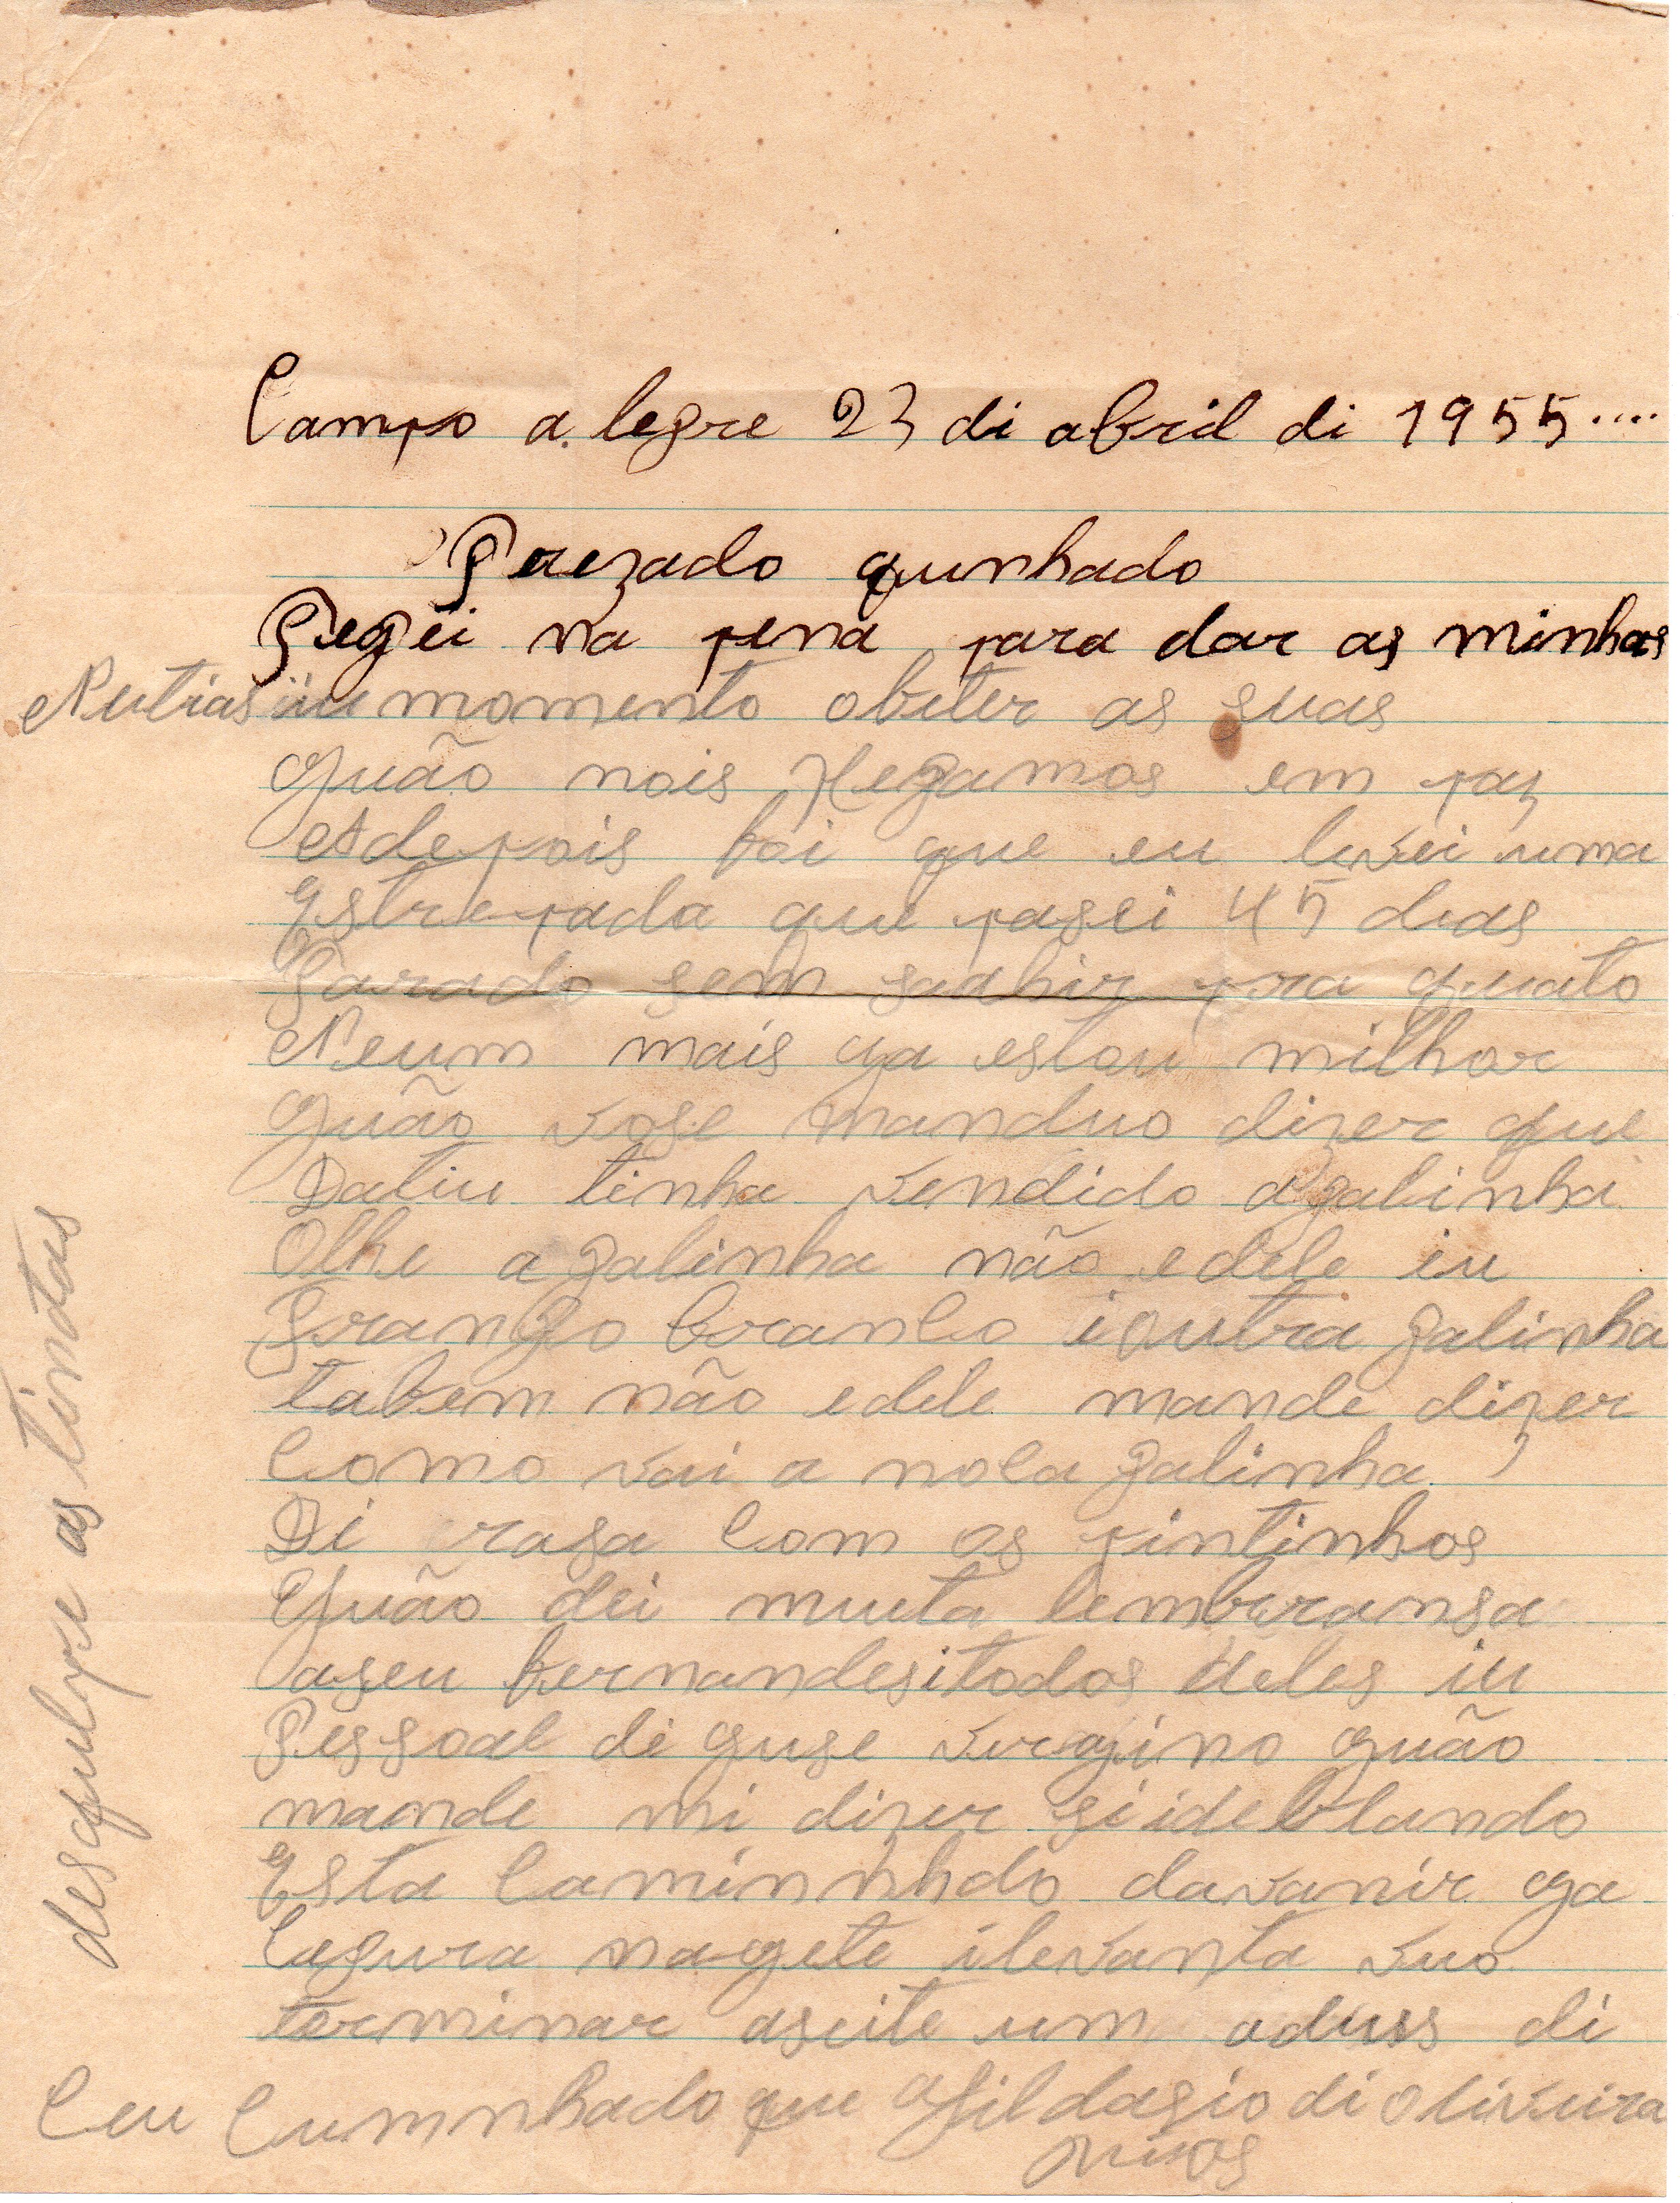 Campo a.legre 23 di abril di 1955....
Prezado qunhado
Peguei na pena para dar as minhas
Nutias iu momento obeter as suas
quão nois xegamos em paz
Adepois foi que eu levei uma
Estrepada que pasei 45 dias
Parado sem saahir pra quato
Neum mais ga estou milhor
quão vose manduo dizer que
Daliu tinha vendido a galinha
Olhe a galinha não edele iu
Frango branco ioutra galinha
tabem não edele mande dizer
Como vai a nosa galinha
Di rasa Com os pintinhos
quão dei muita lembransa
aseu fernandesitodos deles iu
Pessoal di guse virgino quão
mande mi dizer si ideblando
Esta Caminnhdo davanir ga
Segura nagete ilevanta vuo
terminar aseite um aduss di
Ceu Cumnhado que Gildasio di oliveira
Rios
desqulpe as tindas